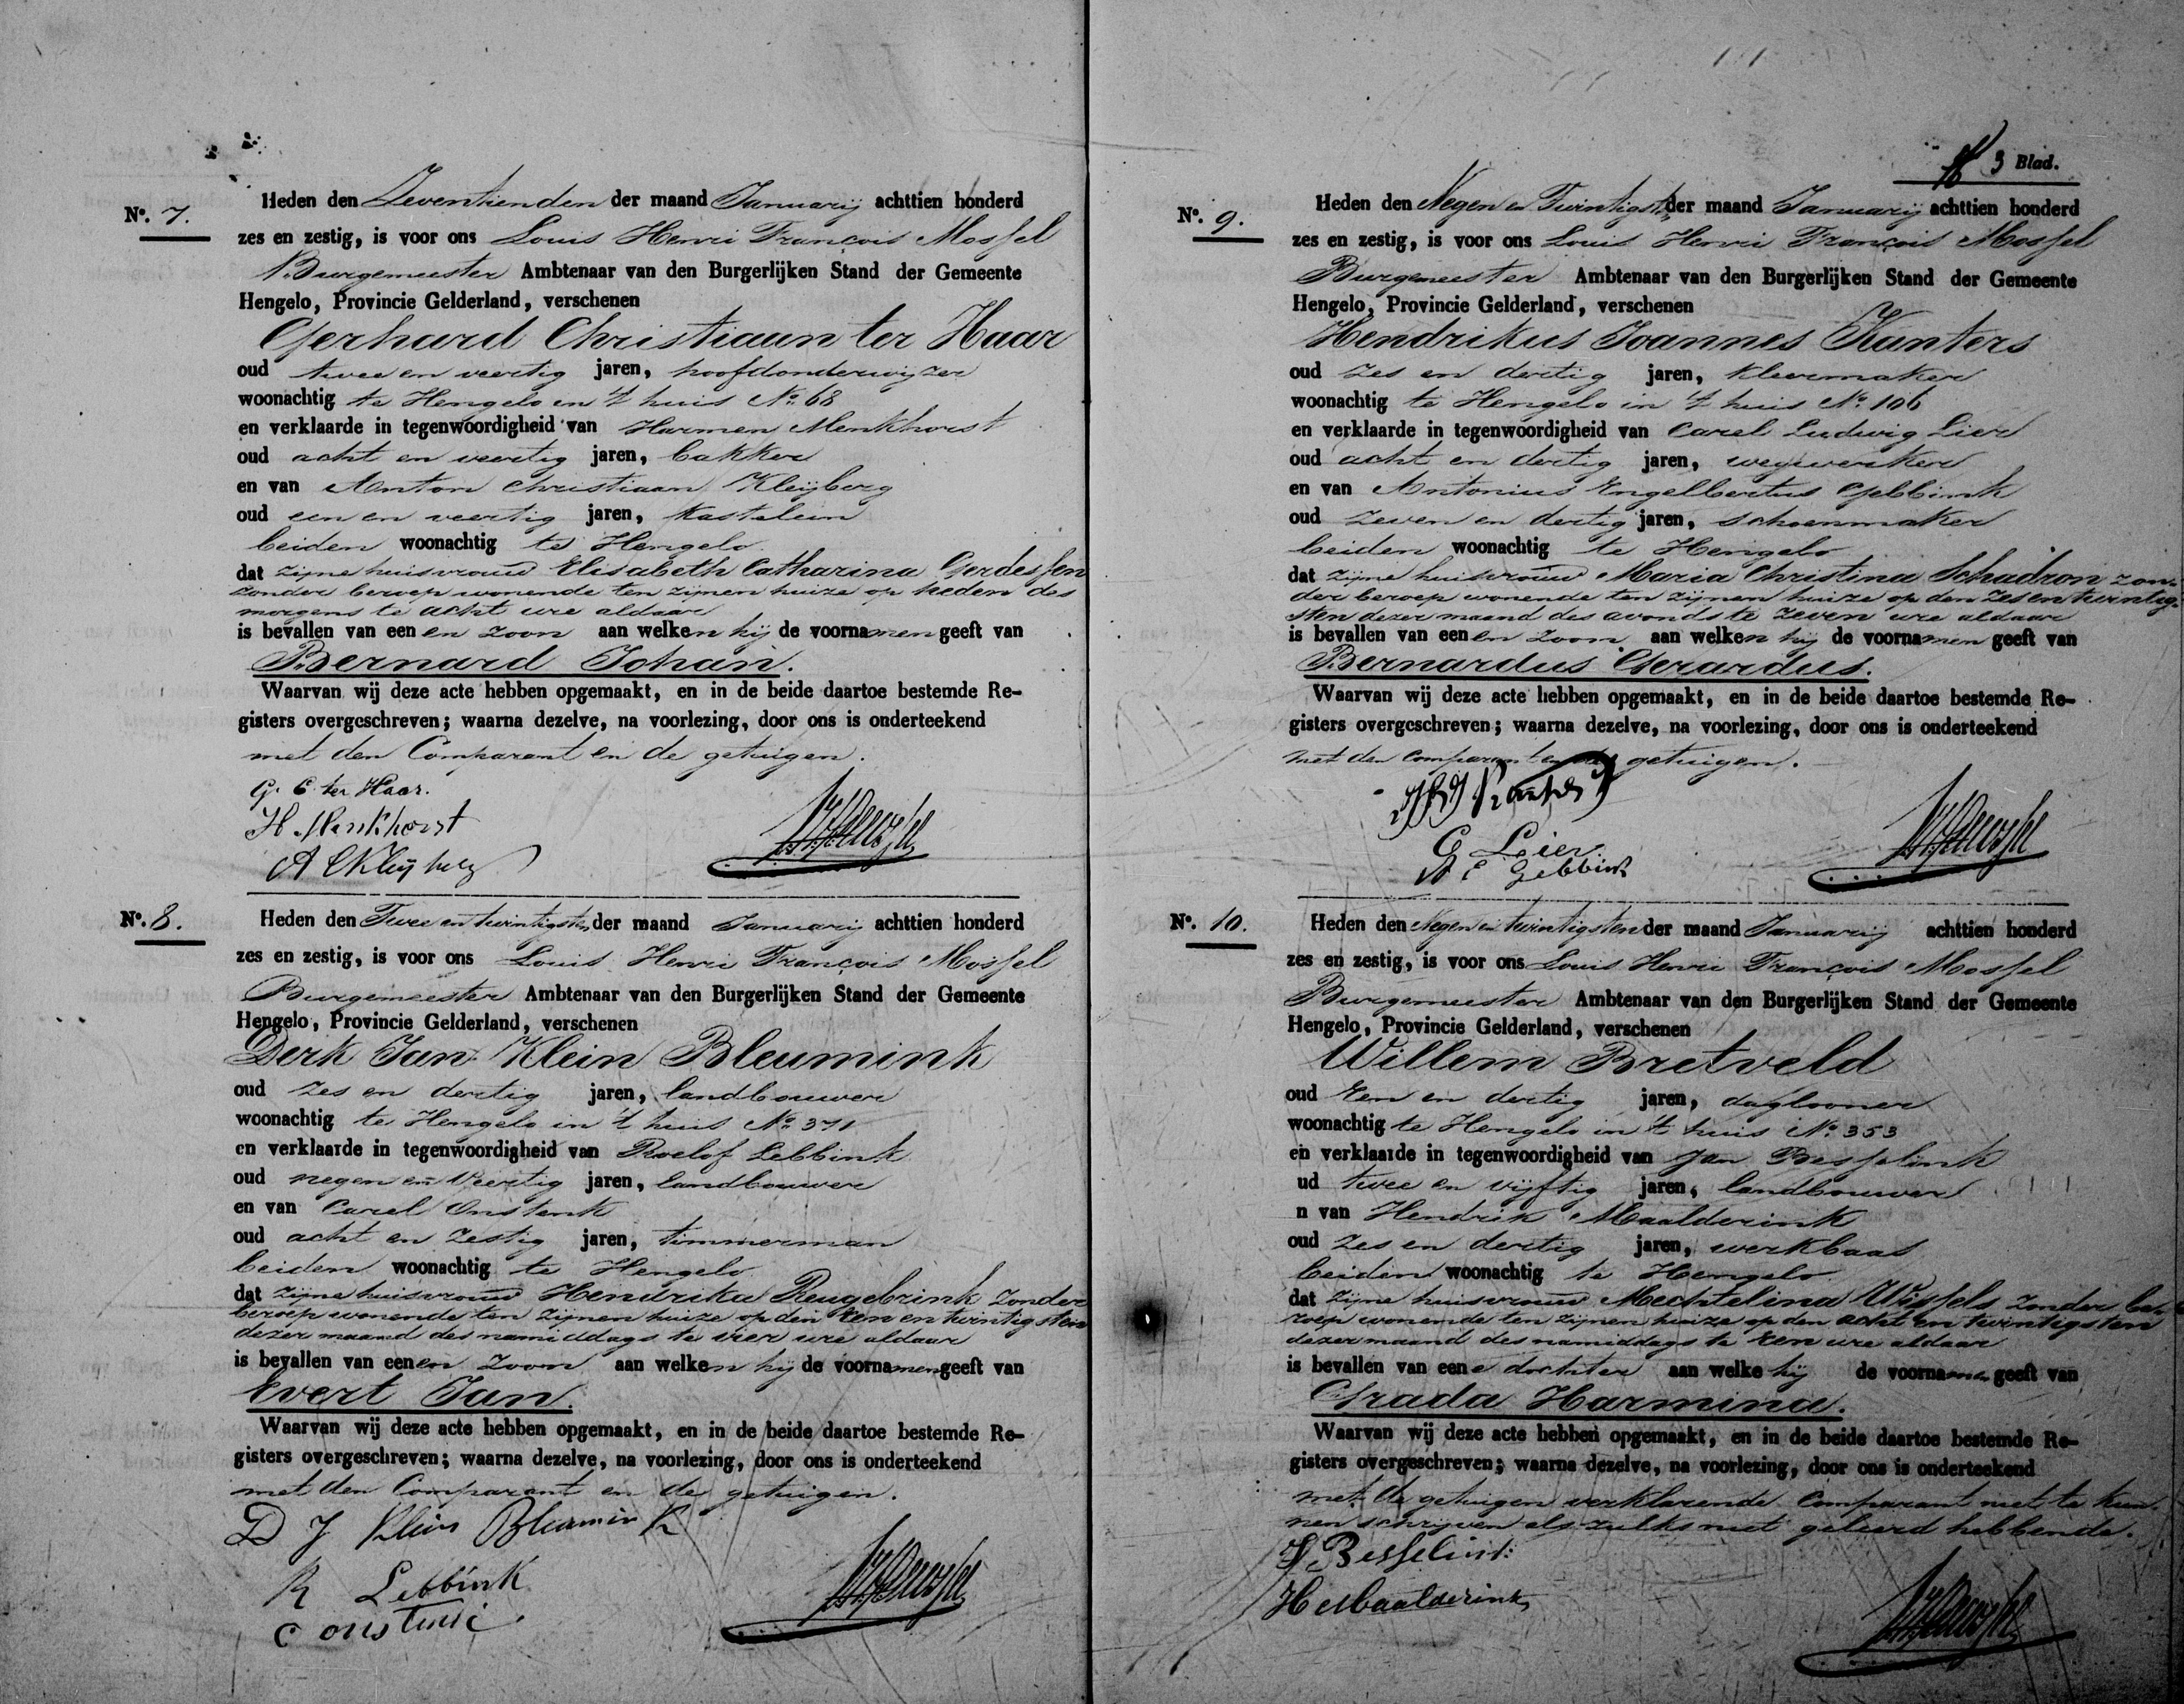 No. 7.
Heden den Zeventienden der maand Januarij achttien honderd
zes en zestig, is voor ons Louis Henri François Mossel
Burgemeester Ambtenaar van den Burgerlijken Stand der Gemeente
Hengelo, Provincie Gelderland, verschenen
Gerhard Christiaan ter Haar
oud twee en veertig jaren, hoofdonderwijzer
woonachtig te Hengelo in 't huis No. 68
en verklaarde in tegenwoordigheid van Harmen Menkhorst
oud acht en veertig jaren, bakker
en van Anton Christiaan Kleijberg
oud een en veertig jaren, kastelein
beiden woonachtig te Hengelo
dat zijne huisvrouw Elisabeth Catharina Gerdessen
zonder beroep wonende ten zijnen huize op heden des
morgens te acht ure aldaar
is bevallen van een en zoon aan welken hij de voornamen geeft van
Bernard Johan.
Waarvan wij deze acte hebben opgemaakt, en in de beide daartoe bestemde Re-
gisters overgeschreven; waarna dezelve, na voorlezing, door ons is onderteekend
met den Comparant en de getuigen.
G. C ter Haar.
H. Menkhorst
A C Kleijberg
No. 8.
Heden den Twee en twintigsten der maand Januarij achttien honderd
zes en zestig, is voor ons Louis Henri François Mossel
Burgemeester Ambtenaar van den Burgerlijken Stand der Gemeente
Hengelo, Provincie Gelderland, verschenen
Derk Jan Klein Bleumink
oud zes en dertig jaren, landbouwer
woonachtig te Hengelo in 't huis No. 371
en verklaarde in tegenwoordigheid van Roelof Lebbink
oud negen en veertig jaren, landbouwer
en van Carel Onstenk
oud acht en zestig jaren, timmerman
beiden woonachtig te Hengelo
dat zijne huisvrouw Hendrika Reugebrink zonder
beroep wonende ten zijnen huize op den een en twintigsten
dezer maand des namiddags te vier ure aldaar
is bevallen van eenen zoon aan welken hij de voornamen geeft van
Evert Jan.
Waarvan wij deze acte hebben opgemaakt, en in de beide daartoe bestemde Re-
gisters overgeschreven; waarna dezelve, na voorlezing, door ons is onderteekend
met den Comparant en de getuigen.
D J Klein Bleumink
R Lebbink
C Onstenk
3 Blad.
No. 9.
Heden den Negen en Twintigsten der maand Januarij achttien honderd
zes en zestig, is voor ons Louis Henri François Mossel
Burgemeester Ambtenaar van den Burgerlijken Stand der Gemeente
Hengelo, Provincie Gelderland, verschenen
Hendrikus Joannes Kanters
oud zes en dertig jaren, kleermaker
woonachtig te Hengelo in 't huis No. 106
en verklaarde in tegenwoordigheid van Carel Ludwig Lier
oud acht en dertig jaren, wegwerker
en van Antonius Engelbertus Gebbink
oud zeven en dertig jaren, schoenmaker
beiden woonachtig te Hengelo
dat zijne huisvrouw Maria Christina Schadron zon-
der beroep wonende ten zijnen huize op den zes en twintig-
sten dezer maand des avonds te zeven ure aldaar
is bevallen van eenen zoon aan welken hij de voornamen geeft van
Bernardus Gerardus.
Waarvan wij deze acte hebben opgemaakt, en in de beide daartoe bestemde Re-
gisters overgeschreven; waarna dezelve, na voorlezing, door ons is onderteekend
met den Comparant en de getuigen.
Lier
A E Gebbink
No. 10.
Heden den Negen en twintigsten der maand Januarij achttien honderd
zes en zestig, is voor ons Louis Henri François Mossel
Burgemeester Ambtenaar van den Burgerlijken Stand der Gemeente
Hengelo, Provincie Gelderland, verschenen
Willem Bretveld
oud Een en dertig jaren, daglooner
woonachtig te Hengelo in 't huis No. 353
en verklaarde in tegenwoordigheid van Jan Besselink
ud twee en vijftig jaren, landbouwer
n van Hendrik Maalderink
oud zes en dertig jaren, werkbaas
beiden woonachtig te Hengelo
dat zijne huisvrouw Mechtelina Wissels zonder be-
roep wonende ten zijnen huize op den acht en twintigsten
dezer maand des namiddags te een ure aldaar
is bevallen van eene dochter aan welke hij de voornamen geeft van
Grada Harmina.
Waarvan wij deze acte hebben opgemaakt, en in de beide daartoe bestemde Re-
gisters overgeschreven; waarna dezelve, na voorlezing, door ons is onderteekend
met de getuigen verklarende Comparant niet te kun-
nen schrijven als zulks niet geleerd hebbende.
J. Besselink
H Maalderink